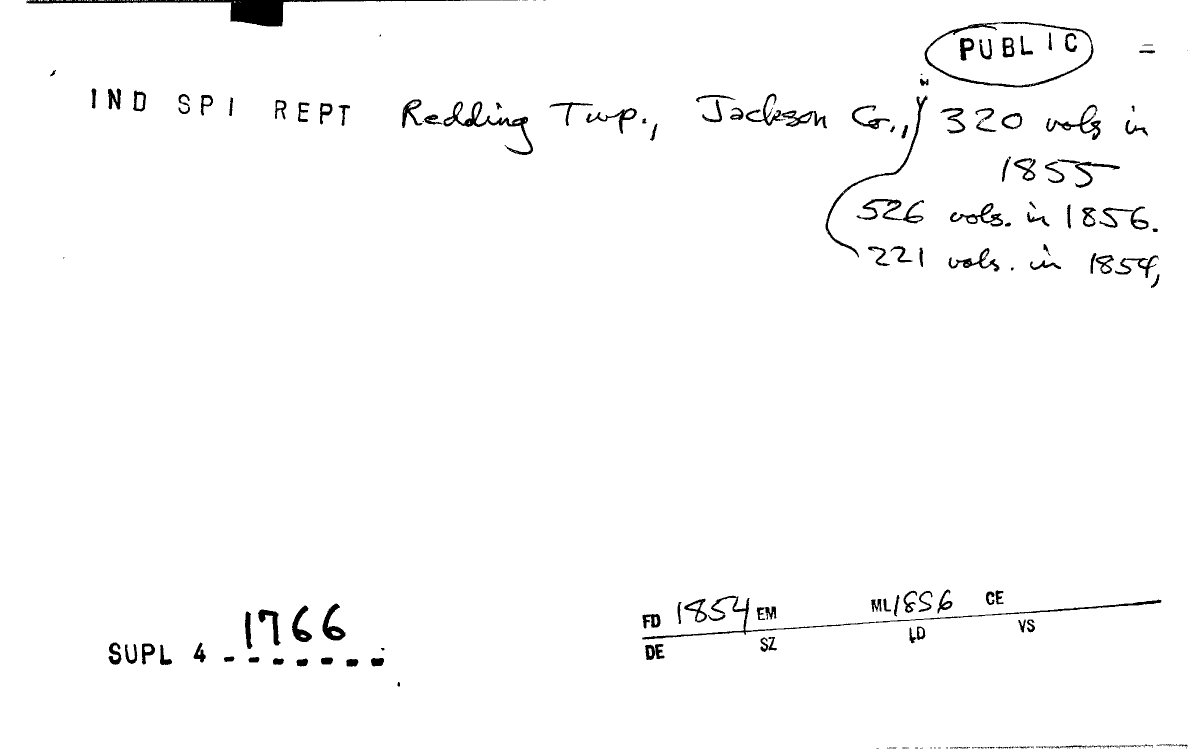 PUBLIC =
IND SPI REPT Redding Twp., Jackson Co., 320 vols in
1855
526 vols. in 1856.
221 vols. in 1854,
1766
SUPL 4
FD 1854 EM ML 1856 CE
DE SZ LD VS